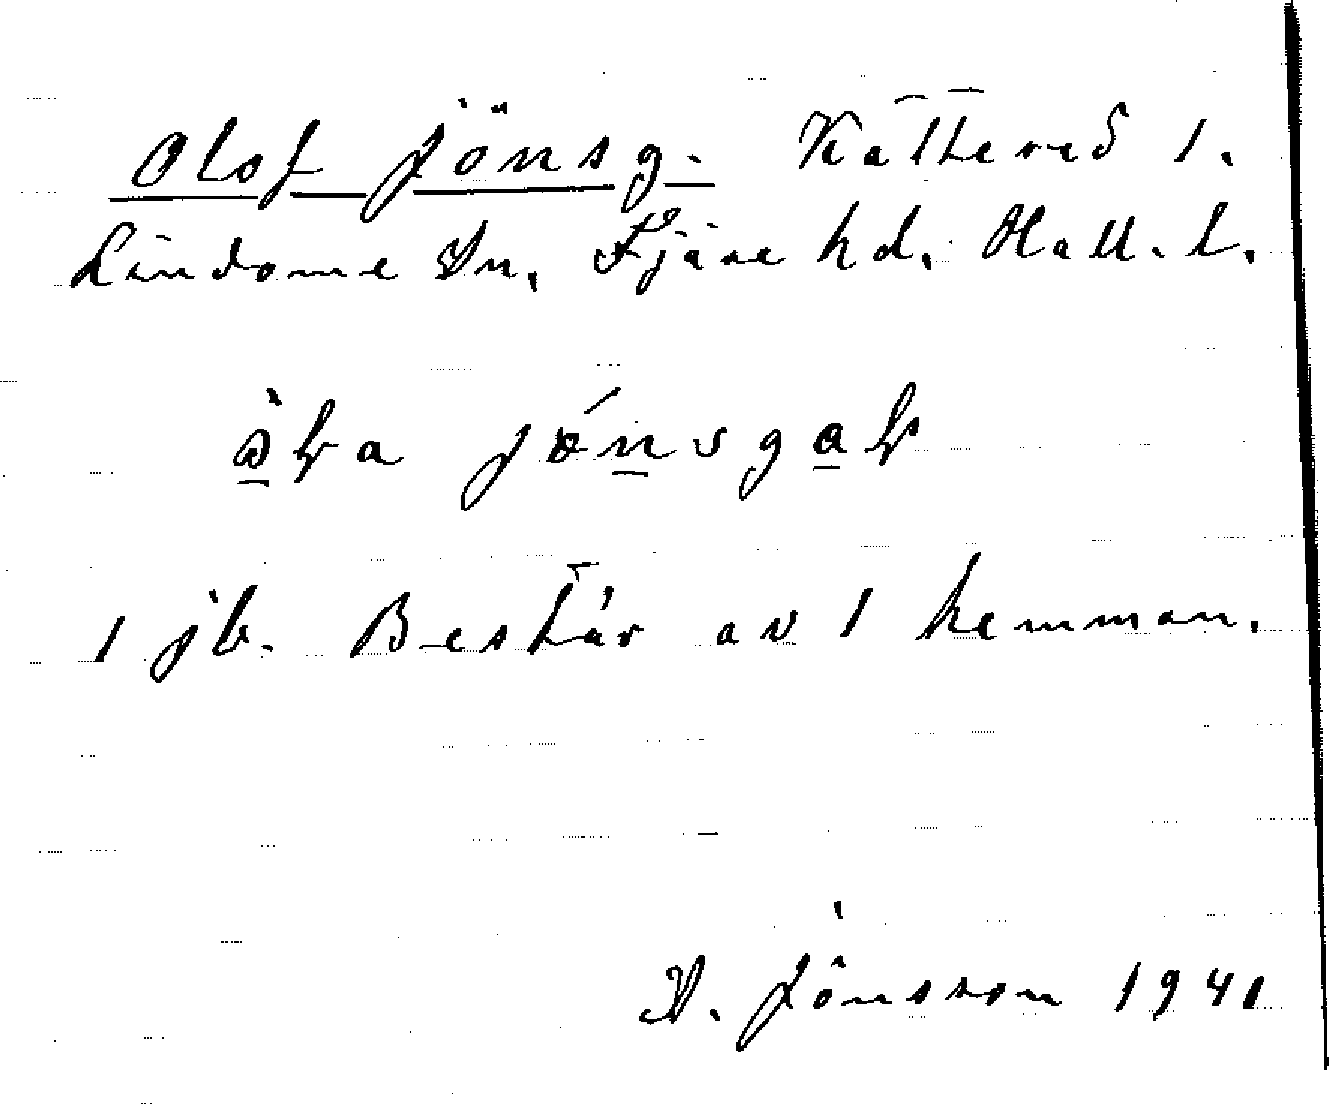 Olof Jönsg. Kattered 1.
Lindome sn, Fjäre hd. Hall. l.
jònsga
1 jb. Består av 1 hemman.
Jönsson 1941